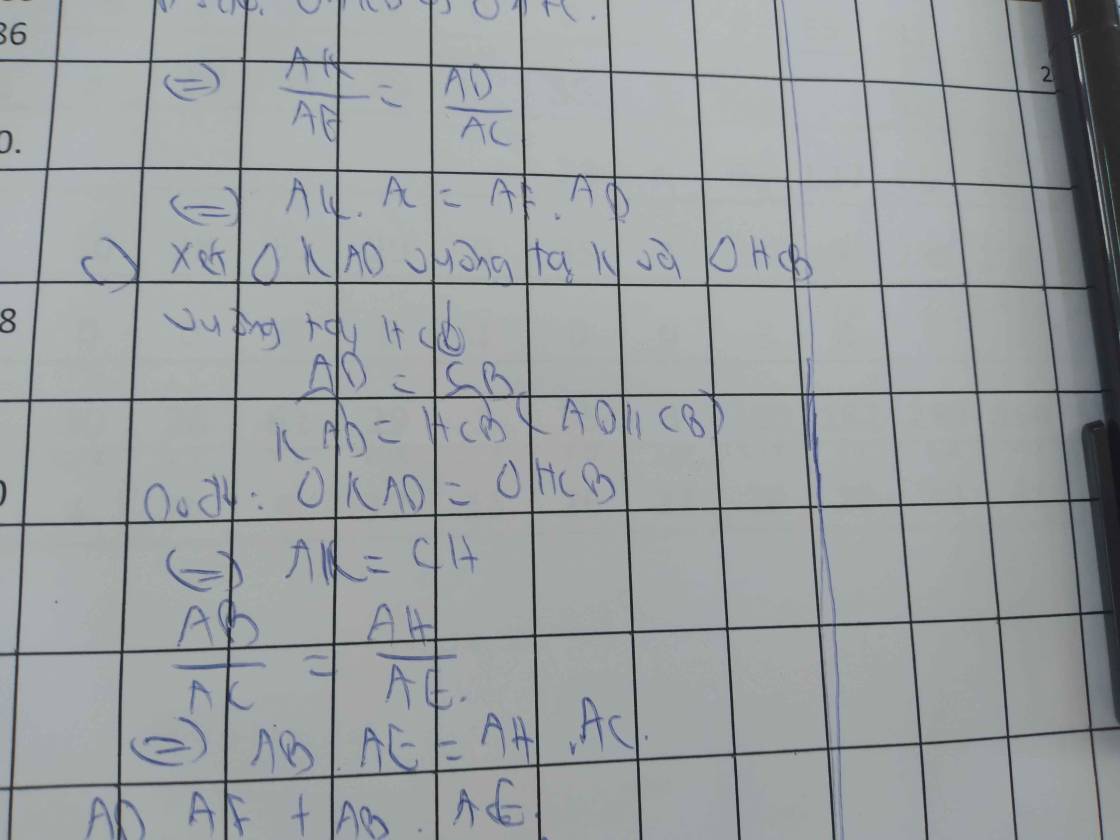 86
2
(=) AK/AE = AD/AC
0.
(=) AK. AC = AF. AD
c) Xét Δ KAD vuông tại K và Δ HCB
8
vuông tại H có
AD = CB
KAD = HCB (AD // CB)
Do đó: Δ KAD = Δ HCB
(=) AK = CH
AB/AC = AH/AE.
(=) AB. AE = AH . AC.
AD AF + AB . AE.